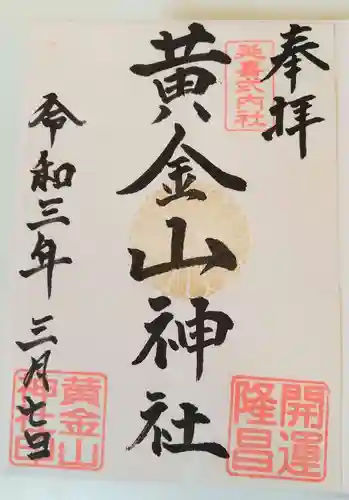 奉拝
延喜式内社
開運
隆昌
黄金山神社
令和三年三月七日
黄金山
神社